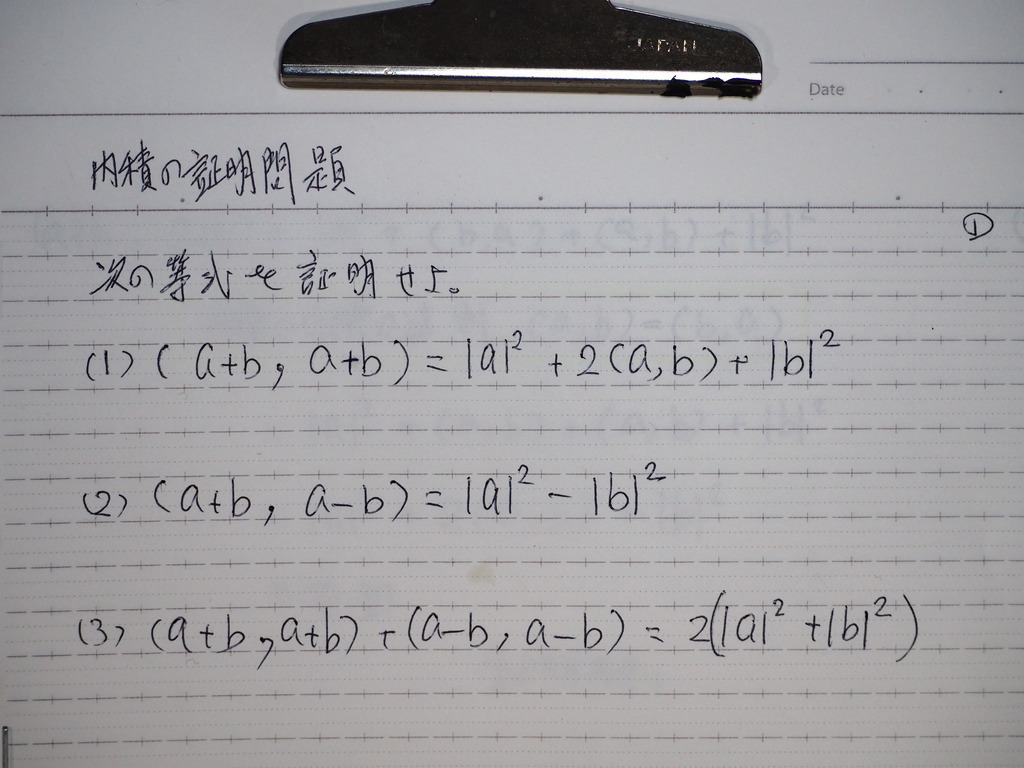 JAPAN
Date
内積の証明問題
①
次の等式を証明せよ。
(1) (a+b, a+b) = |a|² + 2(a,b) + |b|²
(2) (a+b, a-b) = |a|² - |b|²
(3) (a+b, a+b) + (a-b, a-b) = 2(|a|² + |b|²)